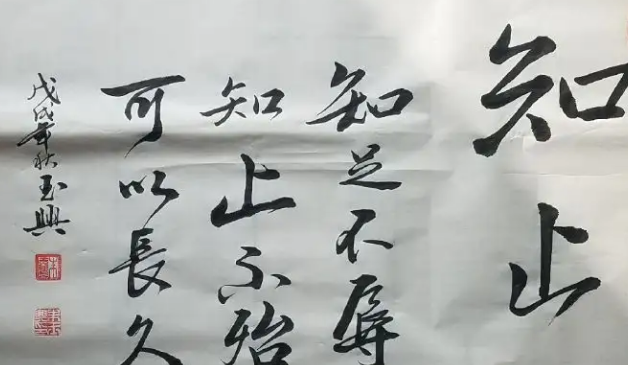 知止
知足不辱
知止不殆
可以長久
戊戌年秋玉興